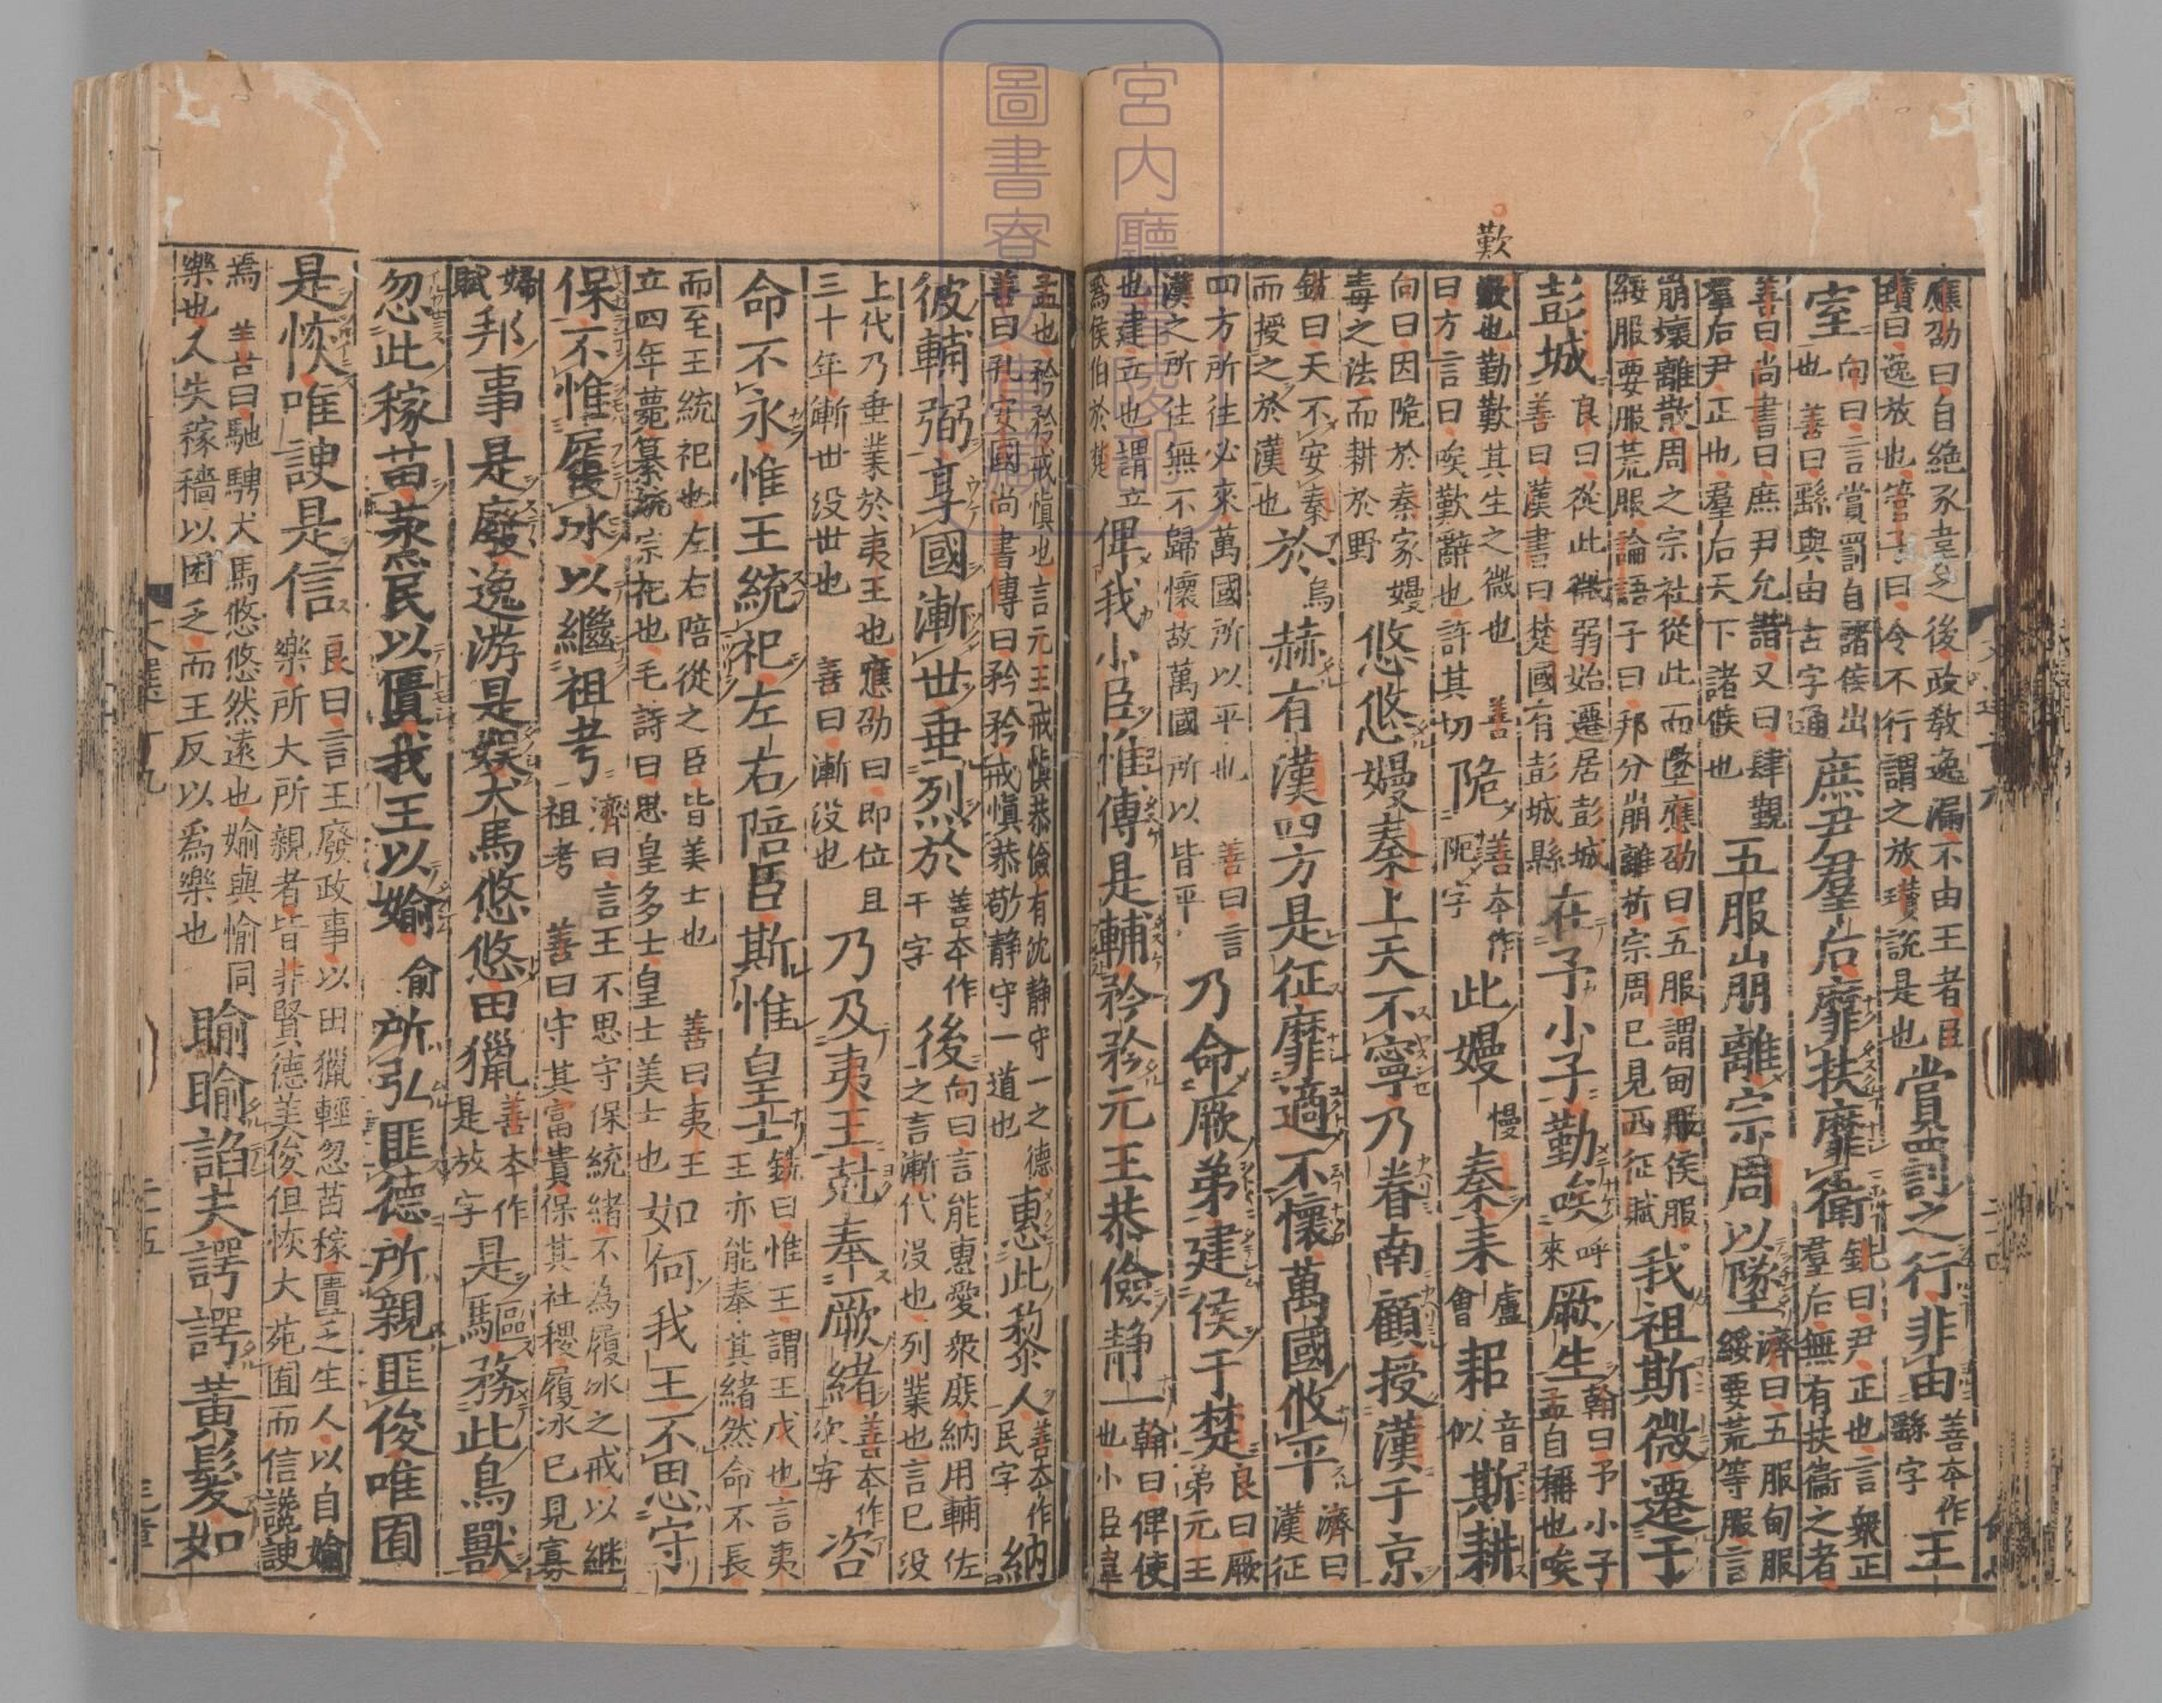 歎
應劭曰自絶豕韋之後政教逸漏不由王者臣瓚曰逸放也管子曰令不行謂之放瓚説是也賞罰之行非由善本作繇字王
室向曰言賞罰自諸侯出也善曰繇與由古字通庶尹羣后靡扶靡衛銑曰尹正也言衆正羣后無有扶衞之者
善曰尚書曰庶尹允諧又曰肆覲羣后尹正也羣后天下諸侯也五服崩離宗周以墜濟曰五服甸服綏要荒等服言
崩壞離散周之宗社從此而墜應劭曰五服謂甸服侯服綏服要服荒服論語子曰邦分崩離析宗周已見西征賦我祖斯微遷于
彭城良曰從此微弱始遷居彭城善曰漢書曰楚國有彭城縣在予小子勤唉呼來厥生翰曰予小子孟自稱也唉
歎也勤歎其生之微也善曰方言曰唉歎辭也許其切阸善本作阨字此嫚慢秦耒盧會耜音似斯耕
向曰因阸於秦家嫚毒之法而耕於野悠悠嫚秦上天不寧乃眷南顧授漢于京
銑曰天不安秦而授之於漢也於烏赫有漢四方是征靡適不懷萬國攸平濟曰漢征
四方所往必來萬國所以平也善曰言漢之所往無不歸懷故萬國所以皆平乃命厥弟建侯于楚良曰厥弟元王
也建立也謂立為侯伯於楚俾我小臣惟傅是輔矜矜元王恭儉静一翰曰俾使也小臣韋
孟也矜矜戒慎也言元王戒慎恭儉有沈静守一之德善曰孔安國尚書傳曰矜矜戒慎恭敬静守一道也惠此黎人善本作民字納
彼輔弼享國漸世垂烈於善本作于字後向曰言能惠愛衆庶納用輔佐之言漸代没也列業也言已没
上代乃垂業於夷王也應劭曰即位且三十年漸世没世也善曰漸没也乃及夷王尅奉厥緒善本作次字咨
命不永惟王統祀左右陪臣斯惟皇士銑曰惟王謂王戊也言夷王亦能奉其緒然命不長
而至王統祀也左右陪從之臣皆美士也善曰夷王立四年薨纂統宗祀也毛詩曰思皇多士皇士美士也如何我王不思守
保不惟履冰以繼祖考濟曰言王不思守保統緒不為履冰之戒以継祖考善曰守其富貴保其社稷履冰已見寡
婦賦邦事是廢逸游是娱犬馬悠悠田獵善本作是放字是驅務此鳥獸
忽此稼苗蒸民以匱我王以媮俞所弘匪德所親匪俊唯囿
是恢唯諛是信良曰言王廢政事以田獵輕忽苗稼匱乏生人以自媮樂所大所親者皆非賢德美俊但恢大苑囿而信讒諛
焉善曰馳騁犬馬悠悠然遠也媮與愉同樂也人失稼穡以困乏而王反以爲樂也睮睮諂夫諤諤黃髮如